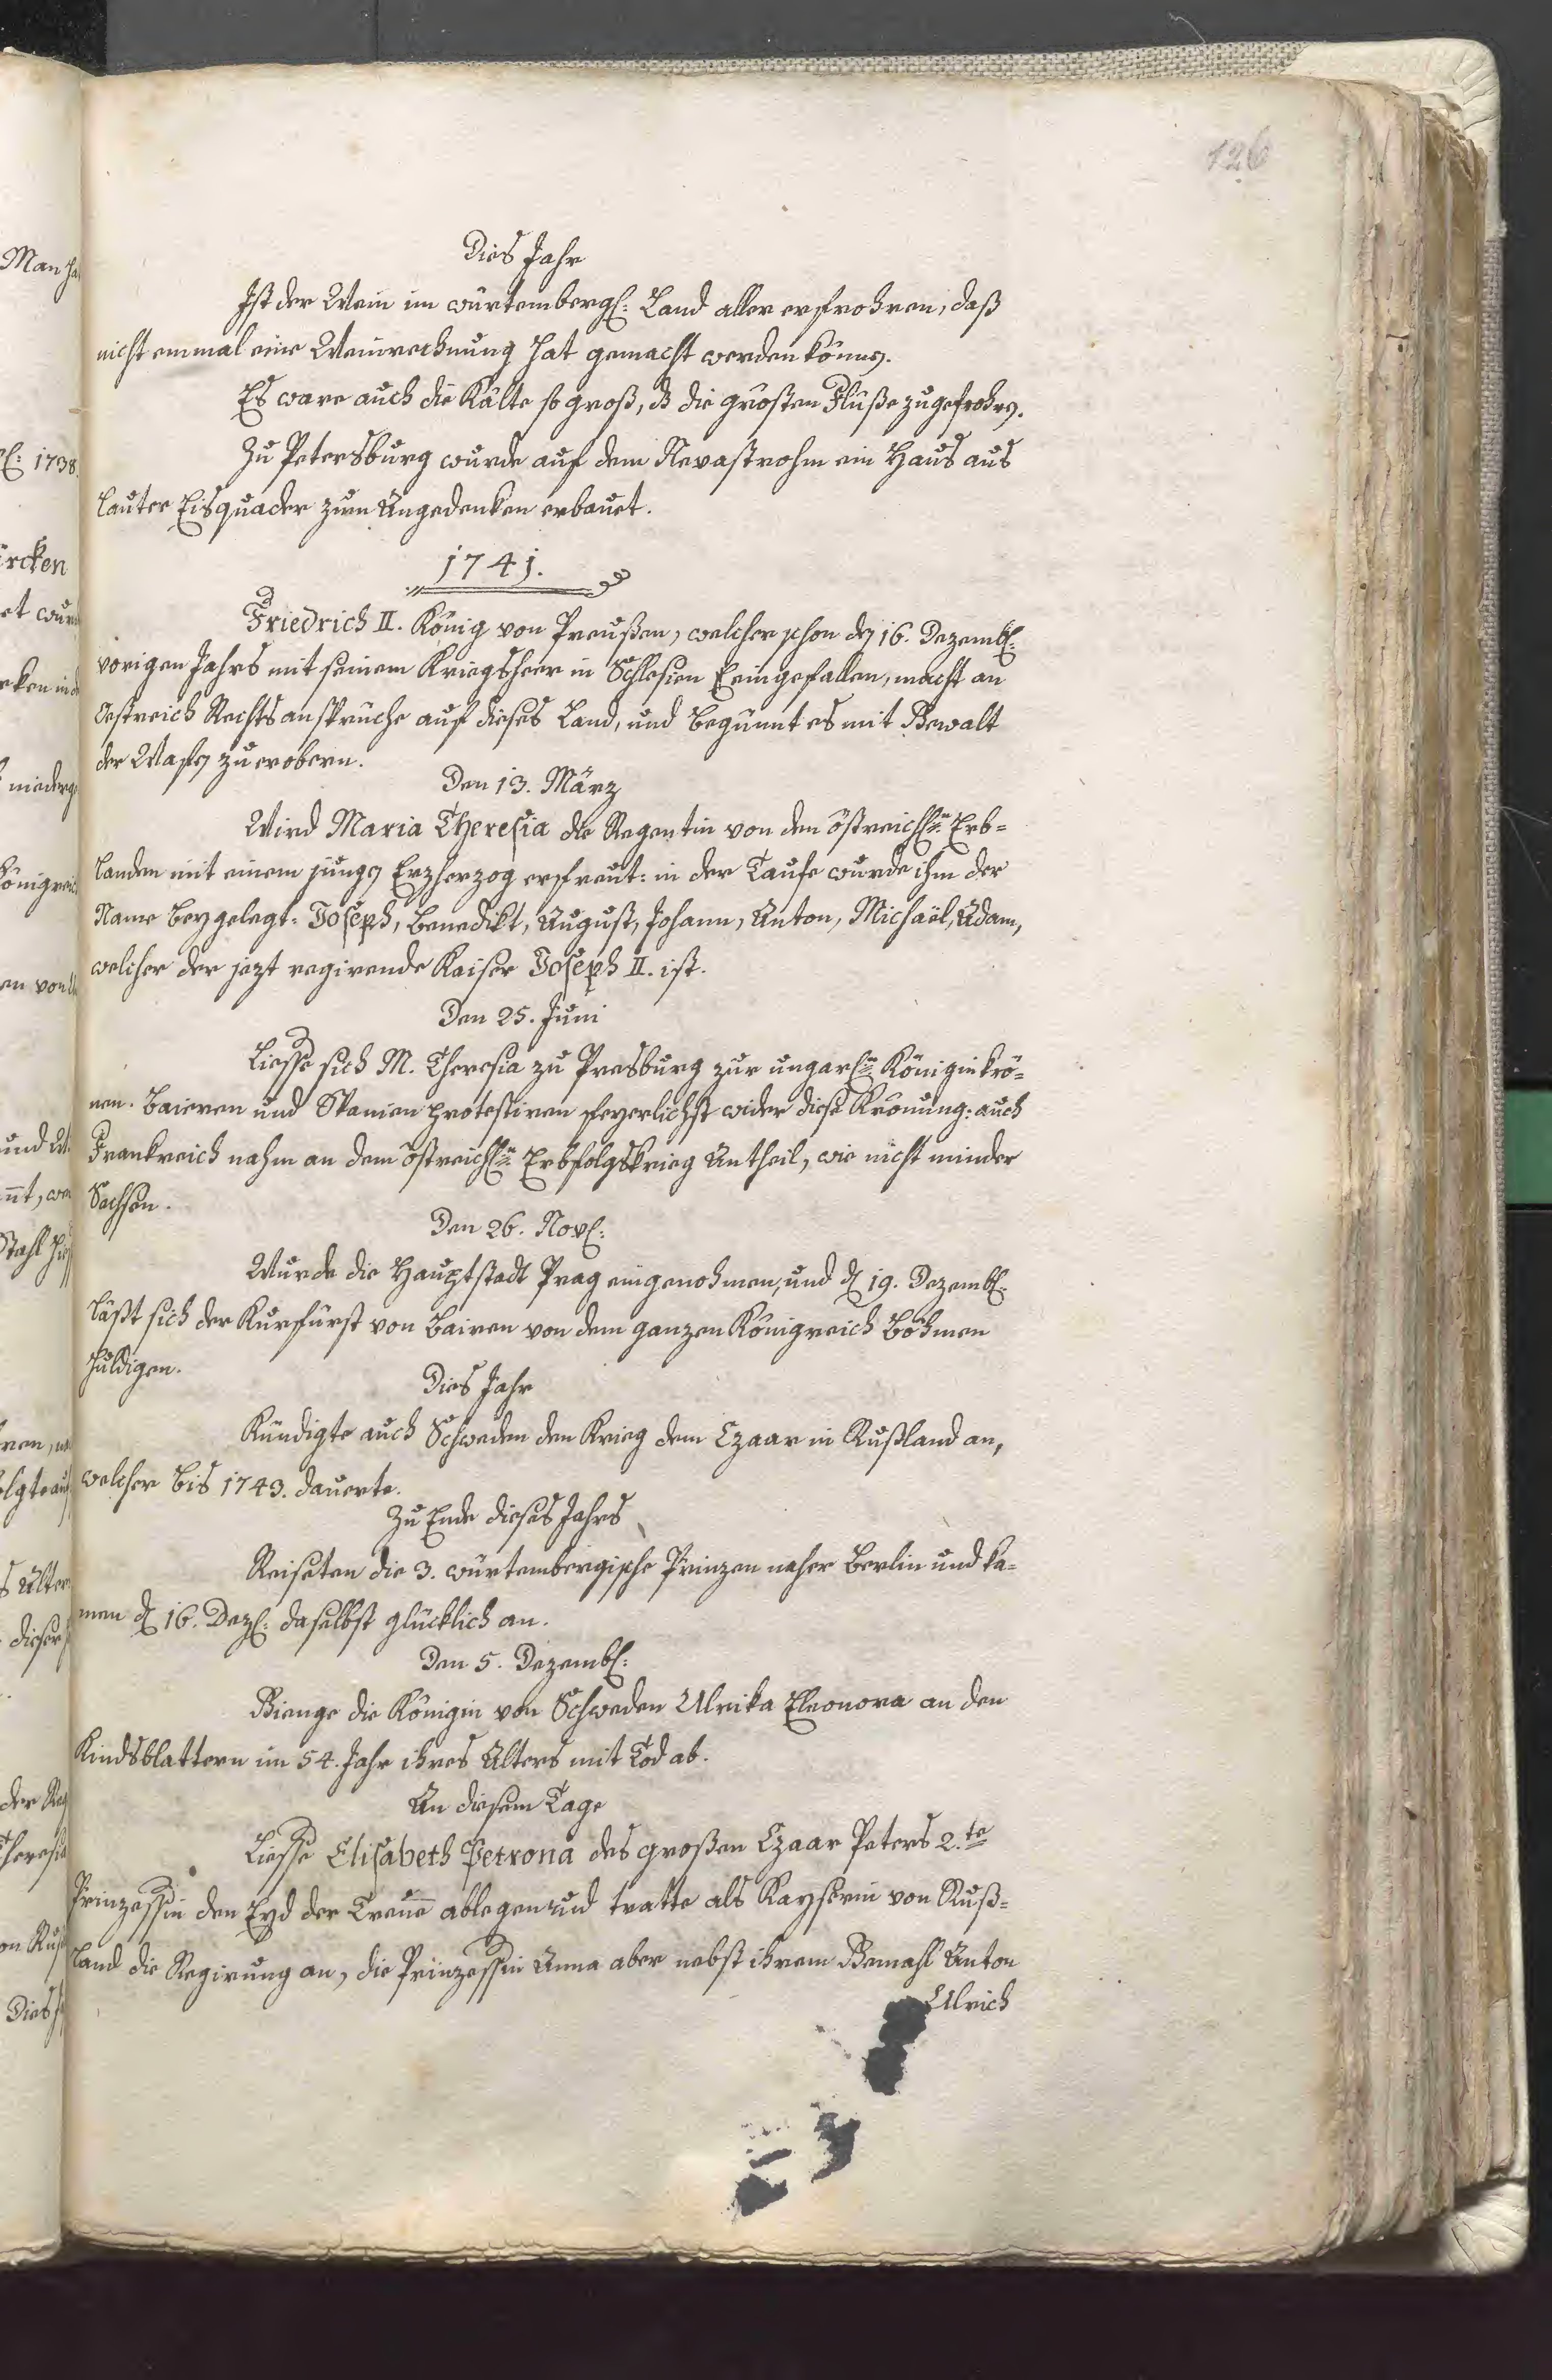 126
Dies Jahr
Ist der Wein im würtembergs: Land aller erfrohren, daß
nicht einmal eine Weinrechnung hat gemacht werden könnn.
Es ware auch die Kälte so groß, dß die größten Flüße zugefrohrn.
Zu Petersburg wurde auf dem Nevastrohm ein Haus aus
lauter Eisquader zum Angedenken erbauet.
1741.
Friedrich II. König von Preußen, welcher schon dn 16. Dezembr:
vorigen Jahrs mit seinem Kriegsheer in Schlesien eingefallen, macht an
Oestreich Rechtsansprüche auf dieses Land, und begünnt es mit Gewalt
der Waffn zu erobern.
Den 13. März
Wird Maria Theresia die Regentin von den östreichsn Erb=
landen mit einem jungn Erzherzog erfreut: in der Taufe wurde ihm der
Name beygelegt: Joseph, Benedikt, August, Johann, Anton, Michaël, Adam,
welcher der jezt regirende Kaiser Joseph II. ist.
Den 25. Juni
Liesse sich M. Theresia zu Presburg zur ungarsn Königin krö=
nen. Baieren und Spanien protestiren feyerlichst wider diese Krönung: auch
Frankreich nahm an dem östreichsn Erbfolgskrieg Antheil, wie nicht minder
Sachsen.
Den 26. Novr:
Wurde die Hauptstadt Prag eingenohmen, und d 19. Dezembr:
läßt sich der Kurfürst von Bairen von dem ganzen Königreich Böhmen
huldigen.
Dies Jahr
Kündigte auch Schweden den Krieg dem Czaar in Rußland an,
welcher bis 1743. dauerte.
Zu Ende dieses Jahrs
Reiseten die 3. würtembergische Prinzen naher Berlin und ka=
men d 16. Dezr: daselbst glücklich an.
Den 5. Dezembr:
Gienge die Königin von Schweden Ulrika Eleonora an den
Kindsblattern im 54. Jahr ihres Alters mit Tod ab.
An diesem Tage
Liesse Elisabeth Petrona des großen Czaar Peters 2.te
Prinzessin den Eyd der Treue ablegen und tratte als Kayserin von Ruß=
land die Regirung an, die Prinzessin Anna aber nebst ihrem Gemahl Anton
Ulrich